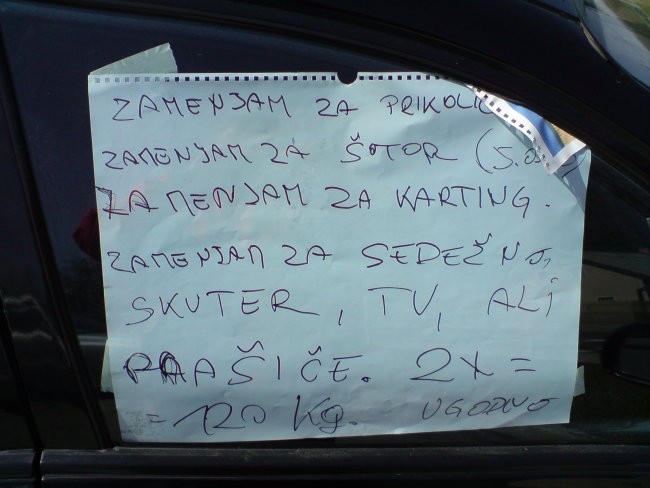 ZAMENJAM ZA PRIKOLIC
ZAMENJAM ZA ŠOTOR (5.
ZAMENJAM ZA KARTING.
ZAMENJAM ZA SEDEŽNO,
SKUTER, TV, ALI
PRAŠIČE. 2X =
= 120 Kg. UGODNO